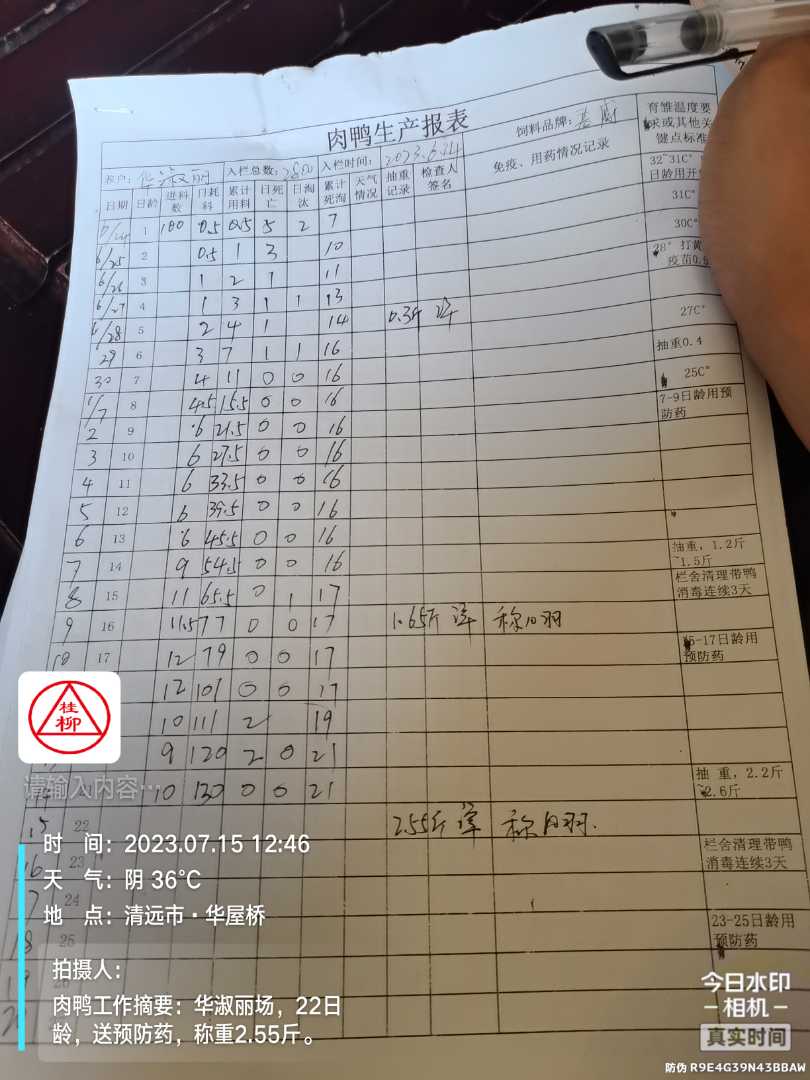 肉鸭生产报表
饲料品牌：
育雏温度要
求或其他关
键点标准
华淑丽 入栏总数：2800 入栏时间：2023.6.24
免疫、用药情况记录
日期 日龄 进料数 日耗料 累计用料 日死亡 日淘汰 累计死淘 天气情况 抽重记录 检查人签名
32~31C°
日龄用开
6/24 1 100 0.5 0.5 5 2 7
31C°
6/25 2 0.5 1 3 10
30C°
6/26 3 1 2 1 11
28° 打黄
疫苗0.5
6/27 4 1 3 1 1 13
6/28 5 2 4 1 14 0.3斤
27C°
29 6 3 7 1 1 16
抽重0.4
30 7 4 11 0 0 16
25C°
1/7 8 4.5 15.5 0 0 16
7-9日龄用预
防药
2 9 6 21.5 0 0 16
3 10 6 27.5 0 0 16
4 11 6 33.5 0 0 16
5 12 6 39.5 0 0 16
6 13 6 45.5 0 0 16
7 14 9 54.5 0 0 16
抽重，1.2斤
~1.5斤
8 15 11 65.5 0 1 17
栏舍清理带鸭
消毒连续3天
9 16 11.5 77 0 0 17 1.65斤 称8羽
10 17 12 79 0 0 17
15-17日龄用
预防药
12 101 0 0 17
10 111 2 19
9 120 2 0 21
10 130 0 0 21
抽 重，2.2斤
~2.6斤
15 22 2.55斤 称8羽.
16 23
栏舍清理带鸭
消毒连续3天
17 24
18 25
23-25日龄用
预防药
桂柳
请输入内容…
时 间：2023.07.15 12:46
天 气：阴 36℃
地 点：清远市·华屋桥
拍摄人：
肉鸭工作摘要：华淑丽场，22日
龄，送预防药，称重2.55斤。
今日水印
相机
真实时间
防伪 R9E4G39N43BBAW